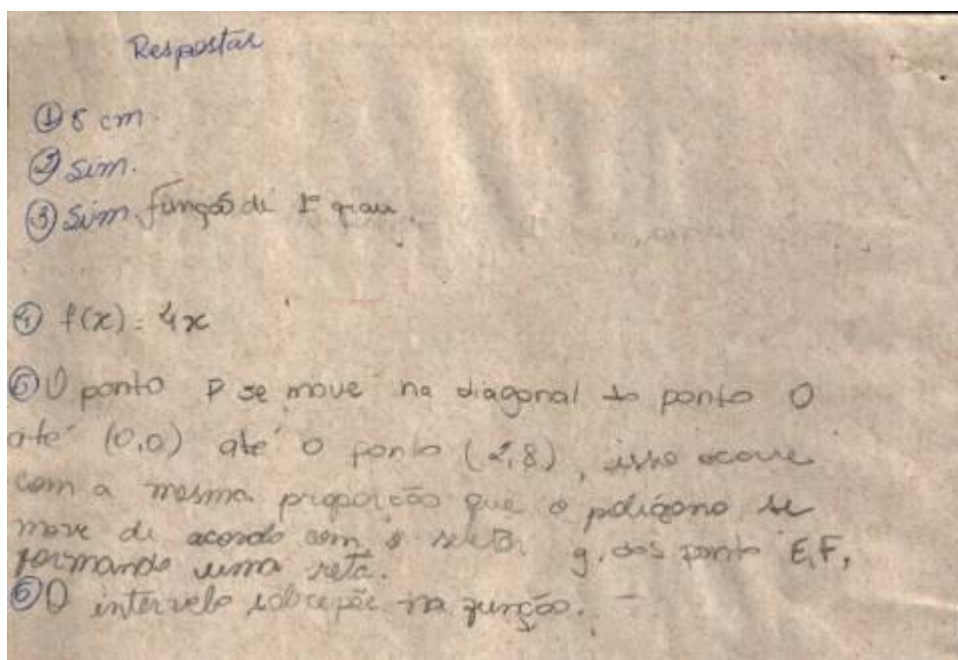 Respostas
① 8 cm.
② Sim.
③ Sim. função de 1º grau.
④ f(x) = 4x
⑤ O ponto P se move na diagonal do ponto O
até (0,0) até o ponto (2,8), isso ocorre
com a mesma proporção que o polígono se
move de acordo com o g. dos ponto E, F,
formando uma reta.
⑥ O intervelo na função.